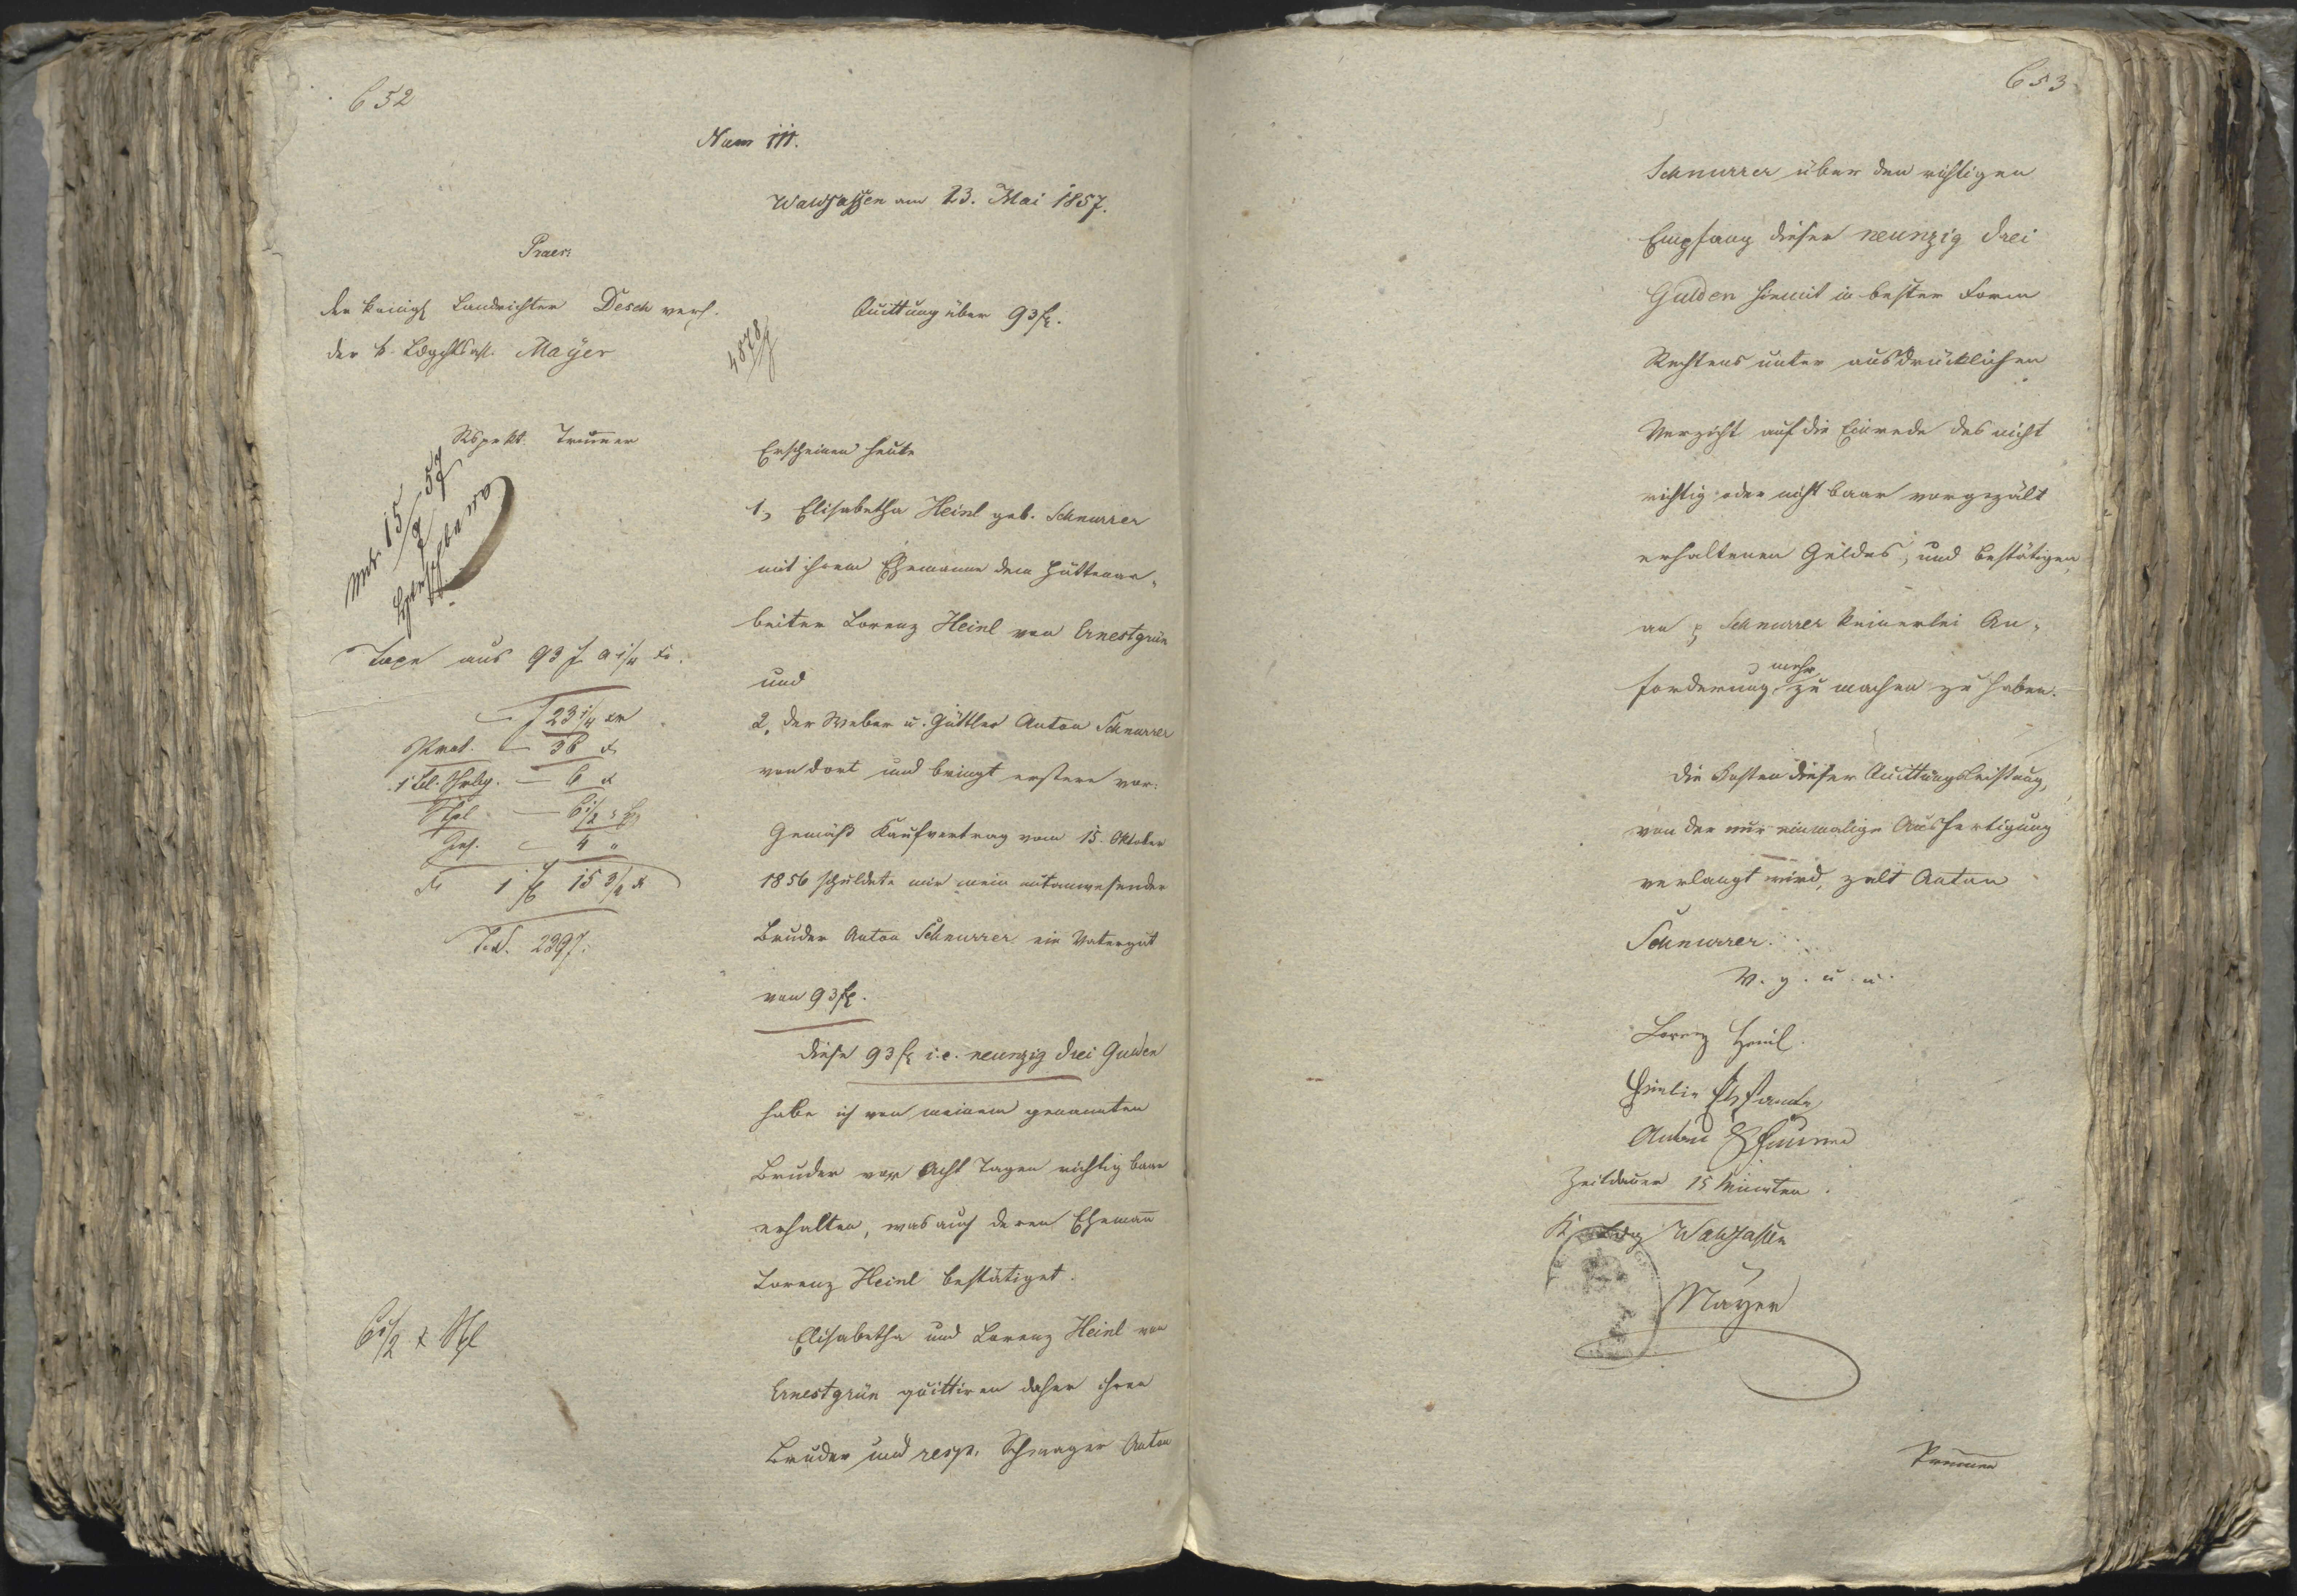 652
Num 111.
Waldsassen am 23. Mai 1857.
Praes:
Der königl Landrichter Desch verh.
der k. Ldgchts Ass. Mayer
Quittung über 93 fl.
4878
Rspkt. Trummer
15/7 57
Taxe aus 93 f a 1/4 xr.
— f 23 1/4 xr
Prot. — 36 x
1 Bl. Schrbg. — 6 x
Stpl — 6 1/2
— 4 "
1 f 15 3/4 x
2397.
6 1/2 x Stpl
Erscheinen heute
1, Elisabetha Heinl geb. Schnurrer
mit ihrem Ehemanne dem Hüttenar-
beiter Lorenz Heinl von Ernestgrün
und
2, der Weber u. Gütler Anton Schnurrer
von dort und bringt erstere vor:
Gemäß Kaufvertrag vom 15. Oktober
1856 schuldete mir mein mitanwesender
Bruder Anton Schnurrer ein Vatergut
von 93 fl.
Diese 93 fl i. e. neunzig drei Gulden
habe ich von meinem genannten
Bruder vor Acht Tagen richtig baar
erhalten, was auch deren Ehemañ
Lorenz Heinl bestätiget.
Elisabetha und Lorenz Heinl von
Ernestgrün quittiren daher ihren
Bruder und resp. Schwager Anton
653
Schnurrer über den richtigen
Empfang dieser neunzig drei
Gulden hiemit in bester Form
Rechtens unter ausdrücklichen
Verzicht auf die Einrede des nicht
richtig oder nicht baar vorgezält
erhaltenen Geldes, und bestätigen
an p Schnurrer keinerlei An-
forderung mehr zu machen zu haben.
Die Kosten dieser Quittungsleistung,
von der nur einmalige Ausfertigung
verlangt wird, zalt Anton
Schnurrer.
V. g. u. u.
Lorenz Heinl.
Anton Schnurrer
Zeitdauer 15 Minuten.
K Ldg Waldsassen
Mayer
Trummer